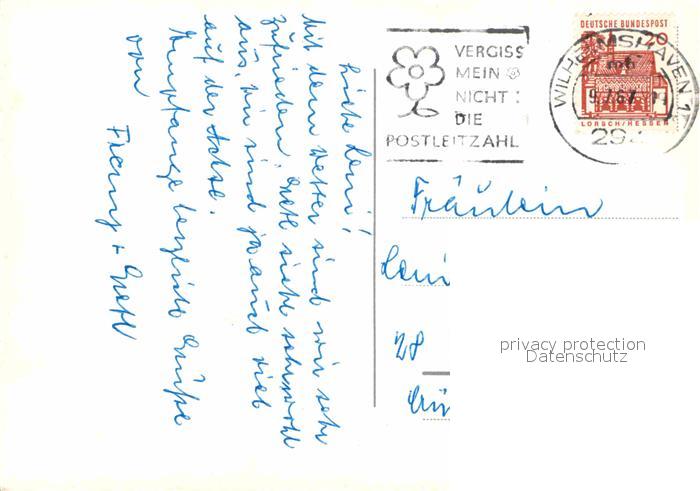 Liebe Leni!
Mit dem Wetter sind wir sehr
zufrieden. Gretl sieht sehr wohl
aus, wir sind ja auch viel
auf der Achse.
Empfange herzliche Grüße
von
Franz + Gretl
VERGISS
MEIN
NICHT:
DIE
POSTLEITZAHL
DEUTSCHE BUNDESPOST
20
LORSCH/HESSEN
WILHELMSHAVEN 1
9.7.67
294
Fräulein
Leni
28
privacy protection
Datenschutz